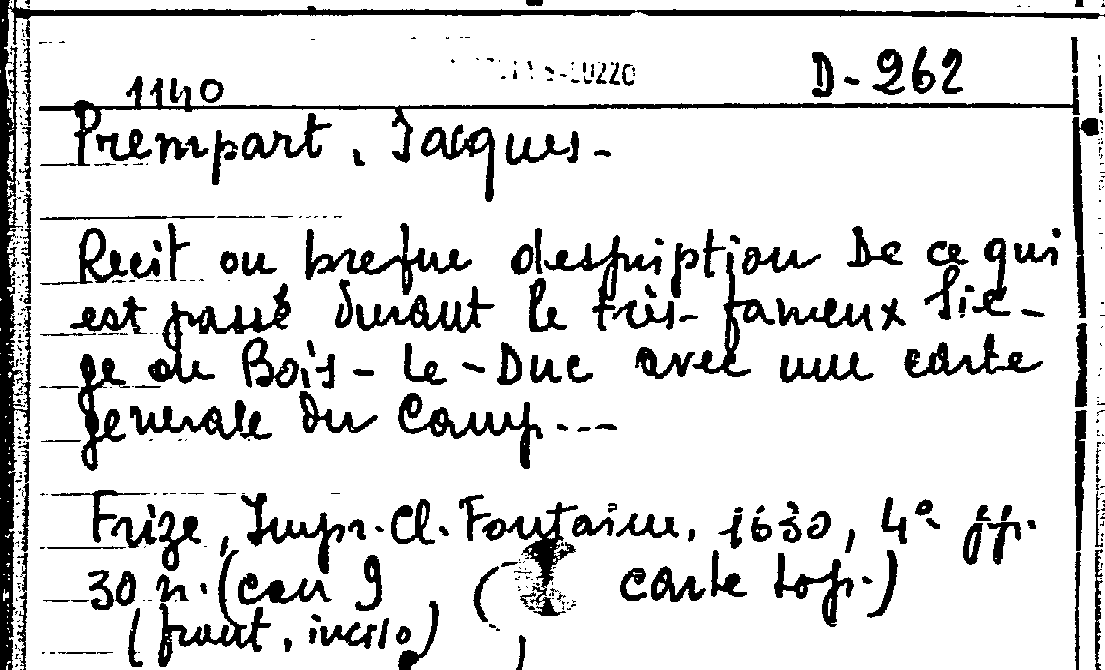 D-262
1140
Prempart, Jacques-
Recit ou brefue description De ce qui
est passé durant le très-fameux Sie-
ge de Bois-Le-Duc avec une carte
generale du Camp---
Frize, Impr. Cl. Fontaine, 1630, 4º pp.
30 n. (con 9 carte top.)
(front. inciso)